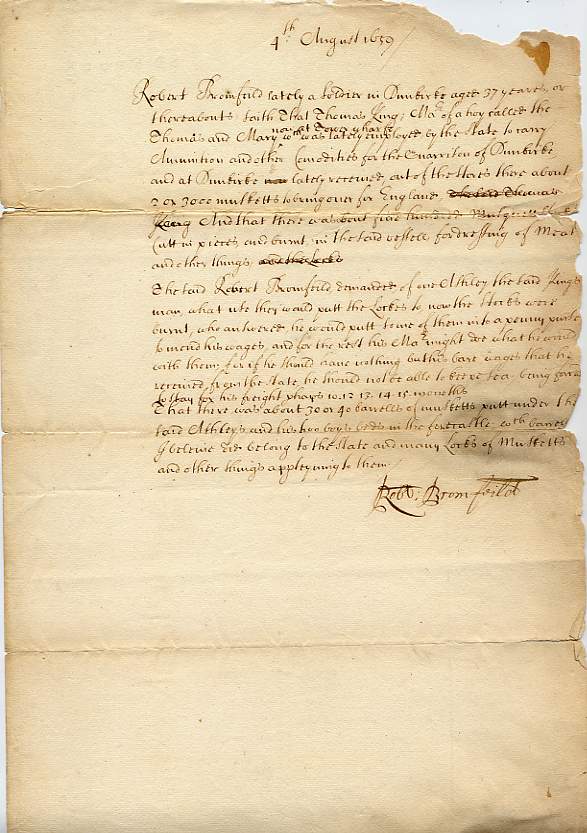 4th August 1659/
Robert Bromfeild lately a Soldier in Dunkirke aged 37 yeares, or
thereabouts saith That Thomas King; Mar of a hoy called the
now at Tower wharfe
Thomas and Mary wch was lately employed by the state to carry
Amunition and other Comodities for the Guarrison of Dunkirke
and at Dunkirke lately received out of the stores there about
2 or 3000 musketts to bring over for England, the said Thomas
King And that there was about five hundred
Cutt in pieces, and burnt, in the said vessell, for dressing of Meat
and other things and the Locks
The said Robert Bromfeild demanded of one Athley the said Kings
man, what use they would putt the Lockes to now the stocks were
burnt, who answered, he would putt some of them into a penny purse
to mend his wages, and for the rest his Mar might doe what he would
with them; for if he should have nothing but his bare wages that he
received from the state, he should not be able to keepe sea being forced
to stay for his freight phaps 10.12 13. 14. 15. months
That there was about 30 or 40 barrells of musketts putt under the
said Athleys and his two boys beds in the forecastle, wch barrells
I beleive did belong to the state and many Locks of Musketts
and other things appteyning to them./
Robt: Bromfeild